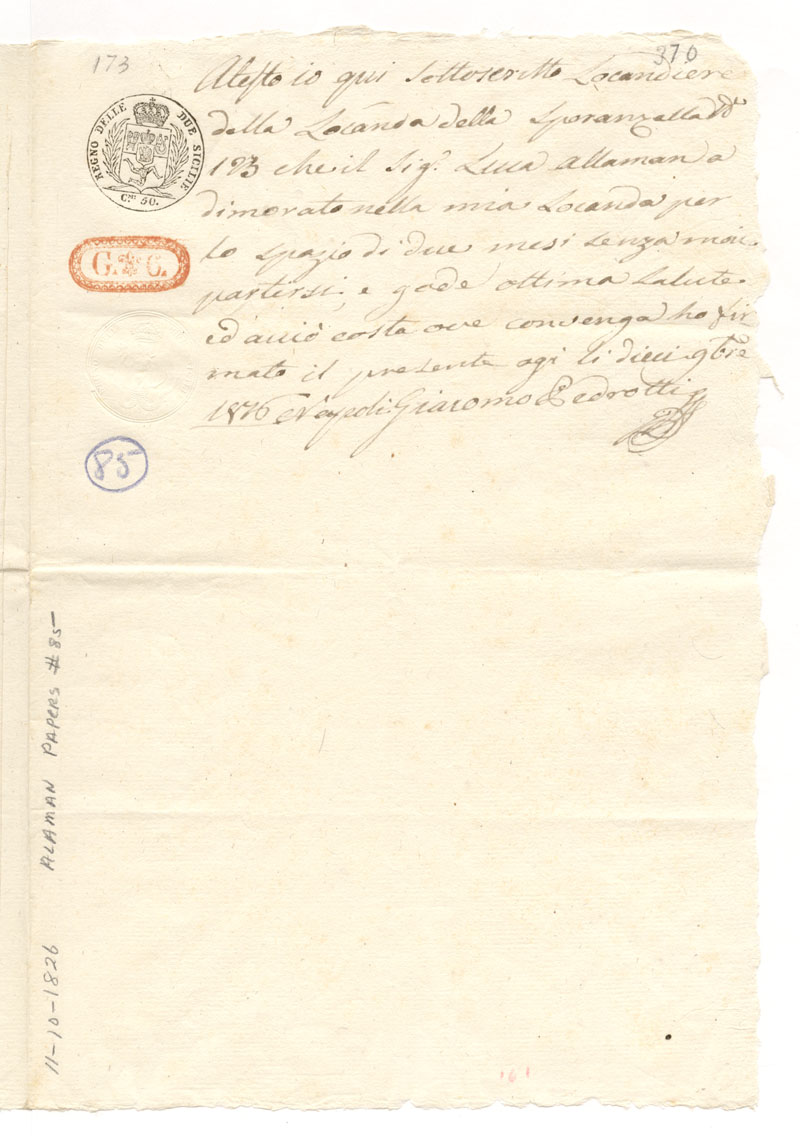 173
370
Atesto io qui Sottoscritto Locandiere
della Locanda della Speranzella
193 che il Sig.r Luca Allaman a
dimorato nella mia Locanda per
lo spazio di due mesi senza mai
partirsi, e gode ottima salute
ed acciò costa ove convenga ho fir
mato il presente ogi li dieci 9bre
1826 Napoli Giacomo Pedrotti
REGNO DELLE DUE SICILIE
G. C.
85
ALAMAN PAPERS #85
11-10-1826
161